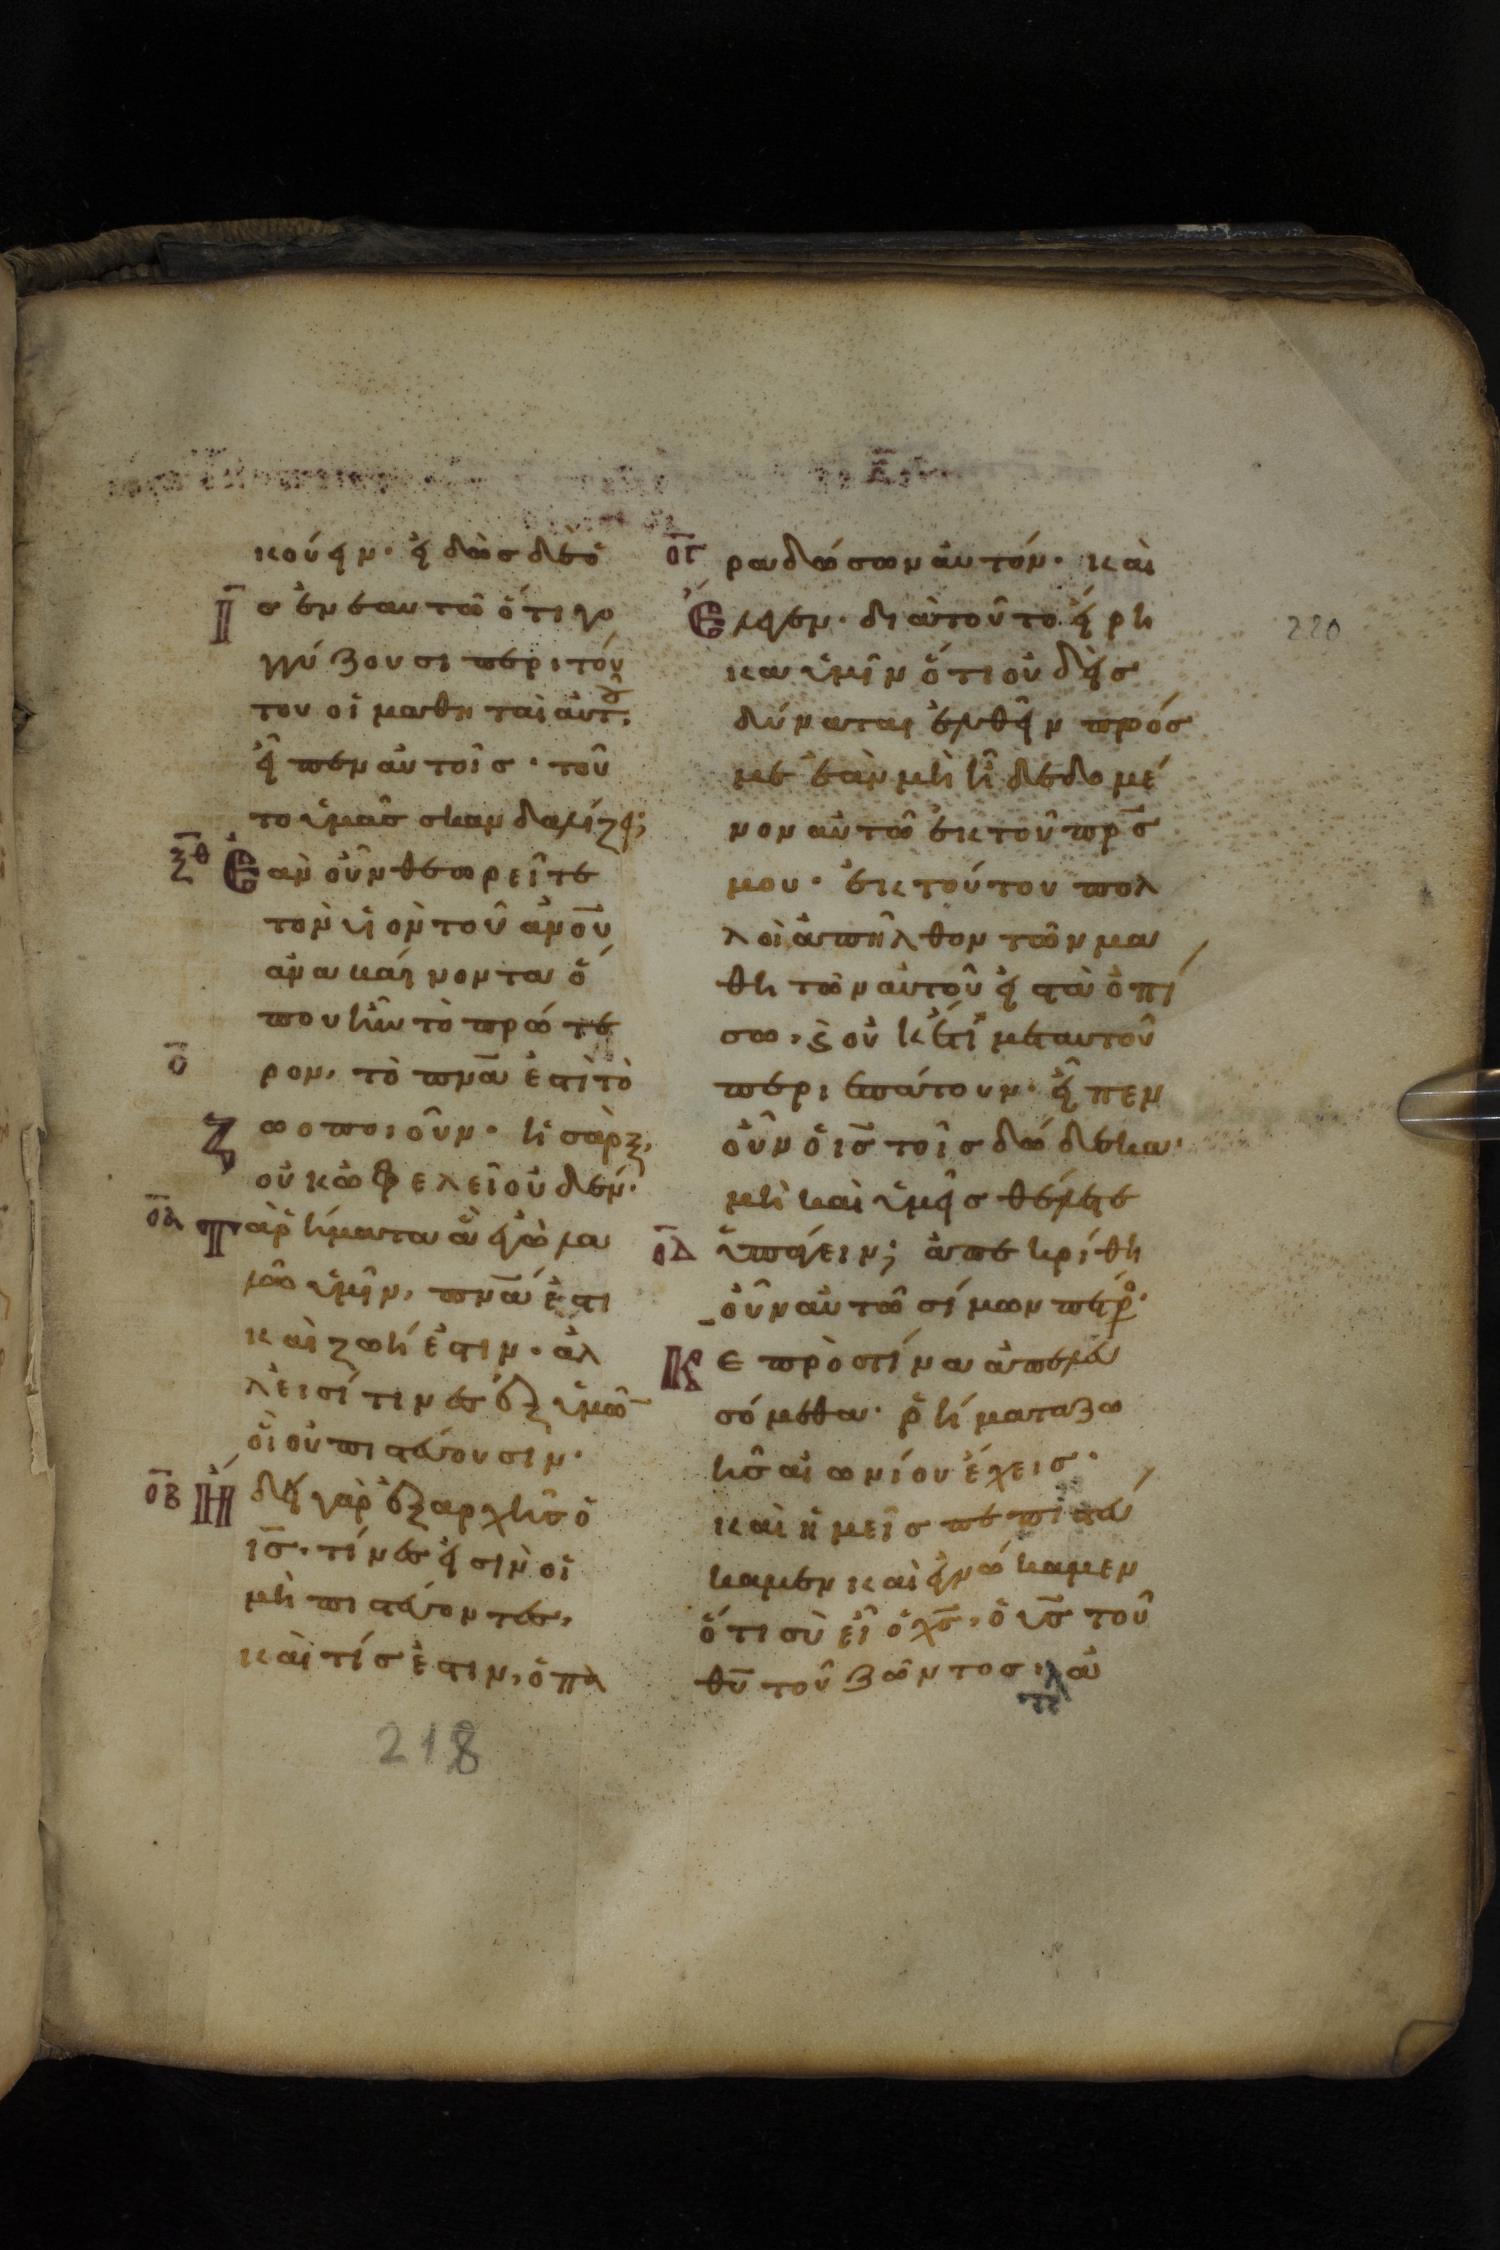 κούειν· εἰδὼσ δὲ ὁ
ῑσ ἐν ἑαυτῶ ὅτι γο
γγύζουσι περι τού
του οἱ μαθηταὶ αὐτοῦ,
εἶπεν αὐτοῖσ· τοῦ
το ὑμᾶσ σκανδαλίζει;
ξ̄θ Ἐὰν οὖν θεωρεῖτε
τὸν υἱὸν τοῦ ἀν̅ο̅υ̅
ἀνακαίνοντα ὅ
που ἦν τὸ πρότε
ο̄ ρον, τὸ πν̅α̅ ἐστὶ τὸ
ζωοποιοῦν· ἡ σὰρξ,
οὐκ ὠφελεῖ οὐδέν·
ο̄α τὰ ῥήματα ἃ ἐγὼ λα
λῶ ὑμῖν, πν̅α̅ ἐστι
καὶ ζωή ἐστιν· ἀλ
λ' εισί τινεσ ἐξ ὑμῶ̅
οἳ οὐ πιστεύουσιν·
ο̄β Ἤδη γὰρ ἐξ αρχῆσ ὁ
ῑσ̅· τίνεσ εἰσὶν οἱ
μὴ πιστεύοντεσ,
καὶ τίσ ἐστιν, ὁ πα
ο̄γ ραδώσων αὐτόν· καὶ
Ἔλεγεν· διατοῦτο εἴρη
κα ὑμῖν ὅτι οὐδεὶσ
δύναται ἐλθεῖν πρόσ
με ἐὰν μὴ ἦ δεδομέ
νον αὐτῶ ἐκ τοῦ πρ̅σ̅
μου· ἐκ τούτου πολ
λοὶ ἀπῆλθον τῶν μα
θητῶν αὐτοῦ εἰσ τὰ ὀπί
σω, ϗ οὐκέτι μετ αυτοῦ
περιεπάτουν· εἶπεν
οὖν ὁ ῑσ̅ τοῖσ δώδεκα·
μὴ καὶ ὑμεῖσ θέλετε
ο̄δ ὑπάγειν; ἀπεκρίθη
οὖν αὐτῶ σίμων πέτρο·
Κε πρὸσ τίνα ἀπελευ
σόμεθα· ῥήματα ζω
ῆσ αἰωνίου ἔχεισ·
καὶ ἡμεῖσ πεπιστεύ
καμεν καὶ ἐγνώκαμεν
ὅτι σὺ εἶ ὁ χ̅σ̅, ὁ υ̅σ̅ τοῦ
θ̅υ̅ τοῦ ζῶντοσ·
218
220